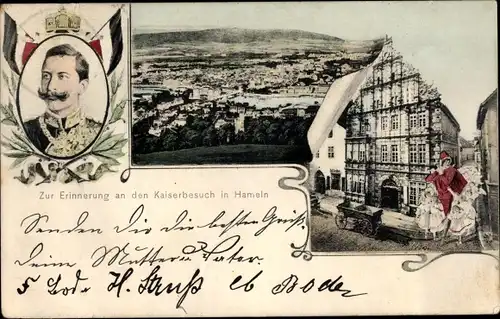 Zur Erinnerung an den Kaiserbesuch in Hameln
Senden Dir die besten Grüße
deine Mutter u. Vater.
H. Struß